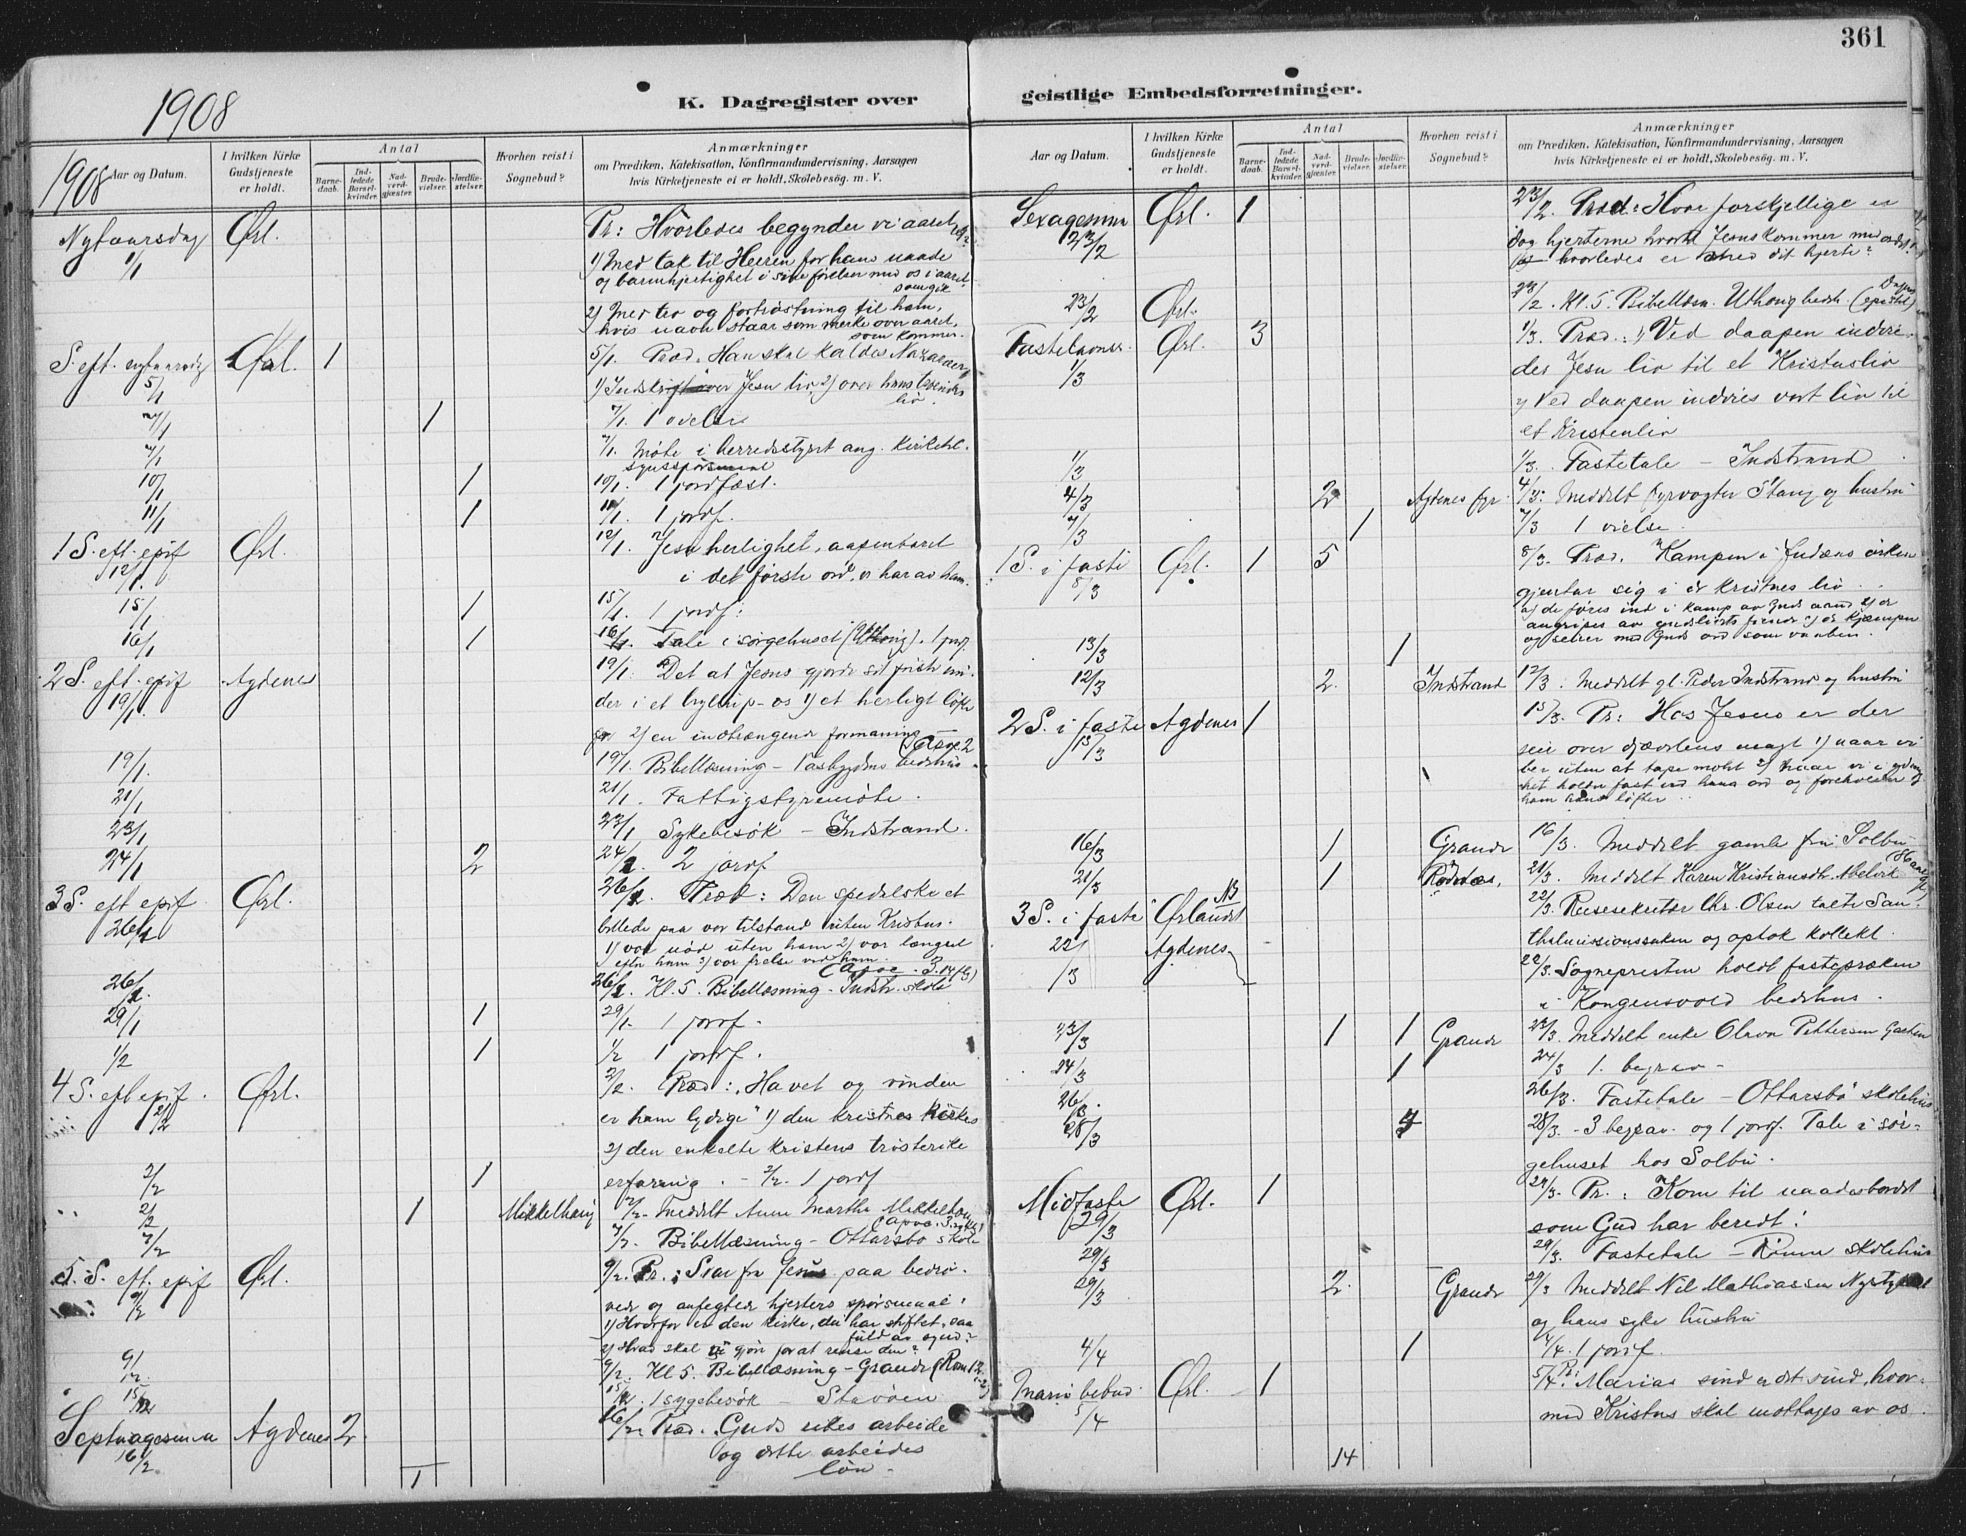 361
1908
K. Dagregister over geistlige Embedsforretninger.
1908
Aar og Datum.
I hvilken Kirke Gudstjeneste er holdt.
Antal
Barnedaab.
Indledede Barselkvinder.
Nadverdgjæster.
Brudevielser.
Jordfæstelser.
Hvorhen reist i Sognebud?
Anmærkninger
om Prædiken, Katekisation, Konfirmandundervisning, Aarsagen
hvis Kirketjeneste ei er holdt, Skolebesög. m. V.
Nytaarsdag Ørl. Pr: Hvorledes begynder vi aaret
1/1 1) Med tak til Herren for hans naade
og barmhjertighet i sine førelser med os i aaret
som gik
2) Med tro og fortrøstning til ham,
hvis navn staar som merke over aaret,
som kommer.
S. eft. nytaarsdag Ørl. 1 5/1. Præd. Han skal kaldes Nazaræer
5/1 1) Indskrift over Jesu liv, 2) over hans troendes
liv.
7/1 1 7/1. 1 vielse
7/1 7/1. Møte i herredsstyret ang. kirketil-
synsspørsmaal
10/1 1 10/1. 1 jordfæst.
11/1 1 11/1. 1 jordf.
1 S. eft. epif Ørl. 12/1. Jesu herlighet, aapenbaret
12/1. i det første ord, vi har av ham.
15/1 1 15/1. 1 jordf.
16/1 1 16/1. Tale i sørgehuset (Uthaug). 1 jordf.
2 S. eft. epif Agdenes 19/1. Det at Jesus gjorde sit første un-
19/1. der i et bryllup – os 1) et herligt løfte
2) en indtrængende formaning
19/1. 19/1. Bibellæsning – bedehus
21/1 21/1. Fattigstyremøte.
23/1 23/1 Sykebesøk – Indstrand.
24/1 2 24/1. 2 jordf
3 S. eft epif Ørl. 26/1. Præd: Den spedalske et
26/1 billede paa vor tilstand uten Kristus.
1) vor nød uten ham 2) vor længsel
efter ham 3) vor frelse ved ham.
26/1. 26/1. Kl. 5. Bibellæsning – Indstr. skole
29/1 1 29/1. 1 jordf.
1/2 1 1/2 1 jordf.
4 S. eft epif. Ørl. 2/2. Præd: „Havet og vinden
2/2 er ham lydige" 1) den kristnes kirkes
2) den enkelte kristens trøsterike
2/2 1 erfaring. – 2/2. 1 jordf
2/2 1 Mikkelhaug 2/2. Meddelt Anne Marthe Mikkelhau
7/2 7/2. Bibellæsning – Ottarsbo skole
5. S. eft. epif Ørl. 9/2. Pr.: Svar fra Jesus paa bedrø-
9/2 vede og anfegtede hjerters spørsmaal:
1) Hvorfor er den kirke, du har stiftet, saa
fuld av synd?
2) Hvad skal vi gjøre for at rense den?
9/2. 9/2. Kl 5. Bibellæsning – Grande (Rom 12
15/2 15/2. 1 sygebesøk – Støvøen
Septuagesima Agdenes 2 16/2. Præd. Guds rikes arbeide
16/2 og dette arbeides
løn.
1
Aar og Datum.
I hvilken Kirke Gudstjeneste er holdt.
Antal
Barnedaab.
Indledede Barselkvinder.
Nadverdgjæster.
Brudevielser.
Jordfæstelser.
Hvorhen reist i Sognebud?
Anmærkninger
om Prædiken, Katekisation, Konfirmandundervisning, Aarsagen
hvis Kirketjeneste ei er holdt, Skolebesög. m. V.
Sexagesima Ørl. 1 23/2. Præd: Hvor forskjellige er
23/2 dog hjerterne hvortil Jesus kommer med ordet
hvorledes er det med dit hjerte?
23/2 Ørl. 23/2. Kl. 5. Bibellæsn. Uthaug bedeh. (Dagens epistel)
Fastelavnss. Ørl. 3 1/3. Præd.: 1) Ved daapen indvie-
1/3 des Jesu liv til et Kristusliv
2) Ved daapen indvies vort liv til
et Kristenliv
1/3 1/3. Fastetale – Indstrand
4/3 2 Agdenes fyr. 4/3: Meddelt fyrvogter Stang og hustru
7/3 1 7/3 1 vielse.
1 S. i faste Ørl. 1 5 8/3. Præd. Kampen i Judæas ørken
8/3 gjentar sig i en kristnes liv
1) de føres ind i kamp av Guds aand 2) de
angripes av gudslivets fiende 3) de kjæmper
og seirer med Guds ord som vaaben.
13/3 1
12/3 2. Indstrand 12/3. Meddelt gl. Peder Indstrand og hustru
2 S. i faste Agdenes 1 15/3. Pr: Hos Jesus er der
15/3 seir over djævelens magt 1) naar vi
ber uten at tape motet 2) naar vi i ydmyg-
het holder fast ved hans ord og foreholder
ham hans løfter
16/3 1 Grande 16/3. Meddelt gamle fru Solbu
21/3 1 Rødsæs, 21/3. Meddelt Karen Kristiansdt.
3 S. i faste Ørlandet 22/3. Reisesekretær Chr. Olsen talte San-
22/3 Agdenes talmissionssaken og optok kollekt.
22/3. Sognepresten holdt fastepræken
i Kongensvold bedehus.
23/3 1 1 Grande 23/3. Meddelt enke Olava Pettersen
24/3 1 24/3 1. begrav –
26/3. 26/3. Fastetale – Ottarsbo skolehus
28/3 4 28/3. – 3 begrav. og 1 jordf. Tale i sør-
gehuset hos Solbu.
Midfaste Ørl. 1 29/3. Pr.: Kom til naadesbordet
29/3 som Gud har beredt!
29/3 29/3. Fastetale – Rønne skolehus
29/3 2. Grande 29/3 Meddelt Nil Mathiassen
og hans syke hustru
4/4 1 4/4. 1 jordf.
Mariæ bebud. Ørl. 1 5/4. Pr: Marias sind er det sind, hvor-
5/4 med Kristus skal mottages av os.
14